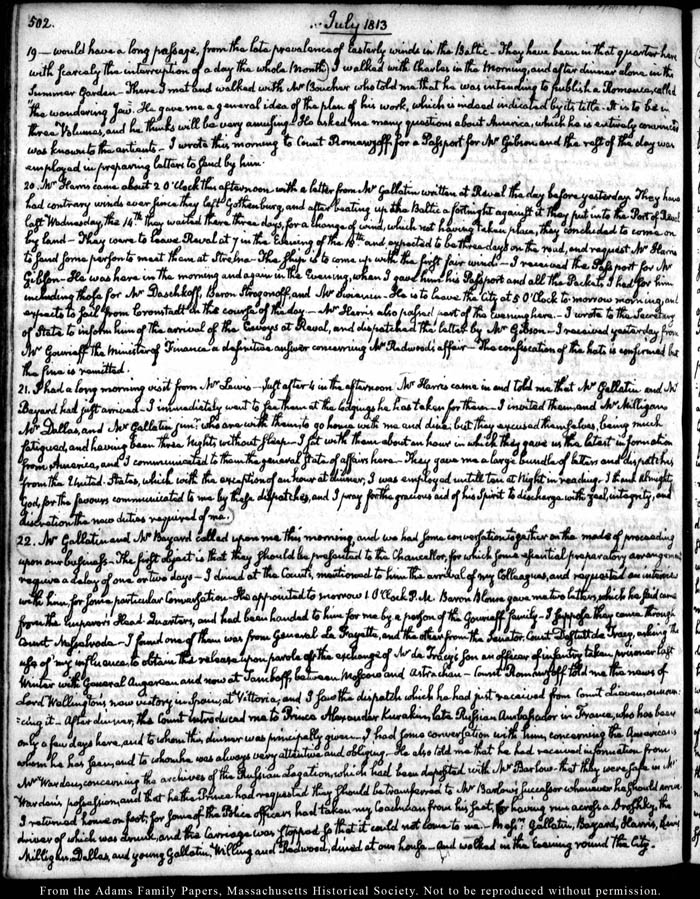 502.
July 1813
19 — would have a long passage, from the late prevalence of Easterly winds in the Baltic — They have been in that quarter here
with scarcely the interruption of a day the whole Month. I walked with Charles in the Morning, and after dinner alone in the
Summer Garden — There I met and walked with Mr Boucher who told me that he was intending to publish a Romance, called
"the wandering Jew. He gave me a general idea of the plan of his work, which is indeed indicated by its title. It is to be in
three Volumes, and he thinks will be very amusing. He asked me many questions about America, which he is entirely convinced
was known to the antients — I wrote this morning to Count Romanzoff, for a Passport for Mr Gibson and the rest of the day was
employed in preparing letters to send by him.
20. Mr Harris came about 2 O'Clock this afternoon with a letter from Mr Gallatin written at Reval the day before yesterday. They have
had contrary winds ever since they left Gothenburg, and after beating up the Baltic a fortnight against it they put into the Port of Reval
last Wednesday, the 14th they waited there three days, for a change of wind, which not having taken place, they concluded to come on
by land — They were to leave Reval at 7 in the Evening of the 18th and expected to be three days on the road, and request Mr Harris
to send some person to meet them at Strelna. The Ship is to come up with the first fair wind — I received the Passport for Mr
Gibson — He was here in the morning and again in the Evening, when I gave him his Passport and all the Packets I had for him
including those for Mr Daschkoff, Baron Strogonoff, and Mr Swinin — He is to leave the City at 5 O'Clock to morrow morning, and
expects to sail from Cronstadt in the course of the day — Mr Harris also passed part of the Evening here — I wrote to the Secretary
of State to inform him of the arrival of the Envoys at Reval, and dispatched the letter by Mr Gibson — I received yesterday from
Mr Gourieff the Minister of Finance a definitive answer concerning Mr Redwood's affair — The confiscation of the hats is confirmed but
the fine is remitted.
21. I had a long morning visit from Mr Lewis — Just after 4 in the afternoon Mr Harris came in and told me that Mr Gallatin and Mr
Bayard had just arrived — I immediately went to see them at the lodgings he has taken for them — I invited them, and Mr Milligan
Mr Dallas, and Mr Gallatin junr who are with them to go home with me and dine; but they excused themselves, being much
fatigued, and having been three Nights without sleep — I sat with them about an hour in which they gave us the latest information
from America, and I communicated to them the general state of affairs here — They gave me a large bundle of letters and dispatches
from the United States, which with the exception of an hour at dinner, I was employed untill ten at Night in reading. I thank Almighty
God, for the favours communicated to me by these dispatches, and I pray for the gracious aid of his Spirit to discharge with zeal, integrity, and
discretion the new duties required of me.
22. Mr Gallatin and Mr Bayard called upon me this morning, and we had some conversation together on the mode of proceeding
upon our business — The first object is that they should be presented to the Chancellor, for which some essential preparatory arrangements
require a delay of one or two days — I dined at the Count's, mentioned to him the arrival of my Colleagues, and requested an interview
with him, for some particular Conversation — He appointed to morrow 1 O'Clock P.M. Baron Blome gave me two letters, which he said came
from the Emperor's Head Quarters, and had been handed to him for me by a person of the Gourieff family — I suppose they came through
Count Nesselrode — I found one of them was from General La Fayette, and the other from the Senator, Count Destutt de Tracy, asking the
use of my influence to obtain the release upon parole or the exchange of Mr de Tracy's Son an officer of infantry taken prisoner last
Winter with General Augereau and now at Tamboff, between Moscow and Astrachan — Count Romanzoff told me the news of
Lord Wellington's new victory in Spain, at Vittoria, and I saw the dispatch which he had just received from Count Lieven, announ-
=cing it — After dinner, the Count introduced me to Prince Alexander Kurakin, late Russian Ambassador in France, who has been
only a few days here, and to whom this dinner was principally given — I had some conversation with him, concerning the Americans
whom he has seen, and to whom he was always very attentive and obliging. He also told me that he had received information from
Mr Warden, concerning the archives of the Russian Legation, which had been deposited with Mr Barlow. that they were safe in Mr
Warden's possession, and that he the Prince had requested they should be transferred to Mr Barlow's successor whenever he should arrive
I returned home on foot; for some of the Police officers had taken my Coachman from his seat, for having run across a Droshky, the
driver of which was drunk, and the Carriage was stopped so that it could not come to me — Messrs Gallatin, Bayard, Harris,
Milligan, Dallas, and young Gallatin, Willing and Redwood, dined at our house — And walked in the Evening round the City.
From the Adams Family Papers, Massachusetts Historical Society. Not to be reproduced without permission.